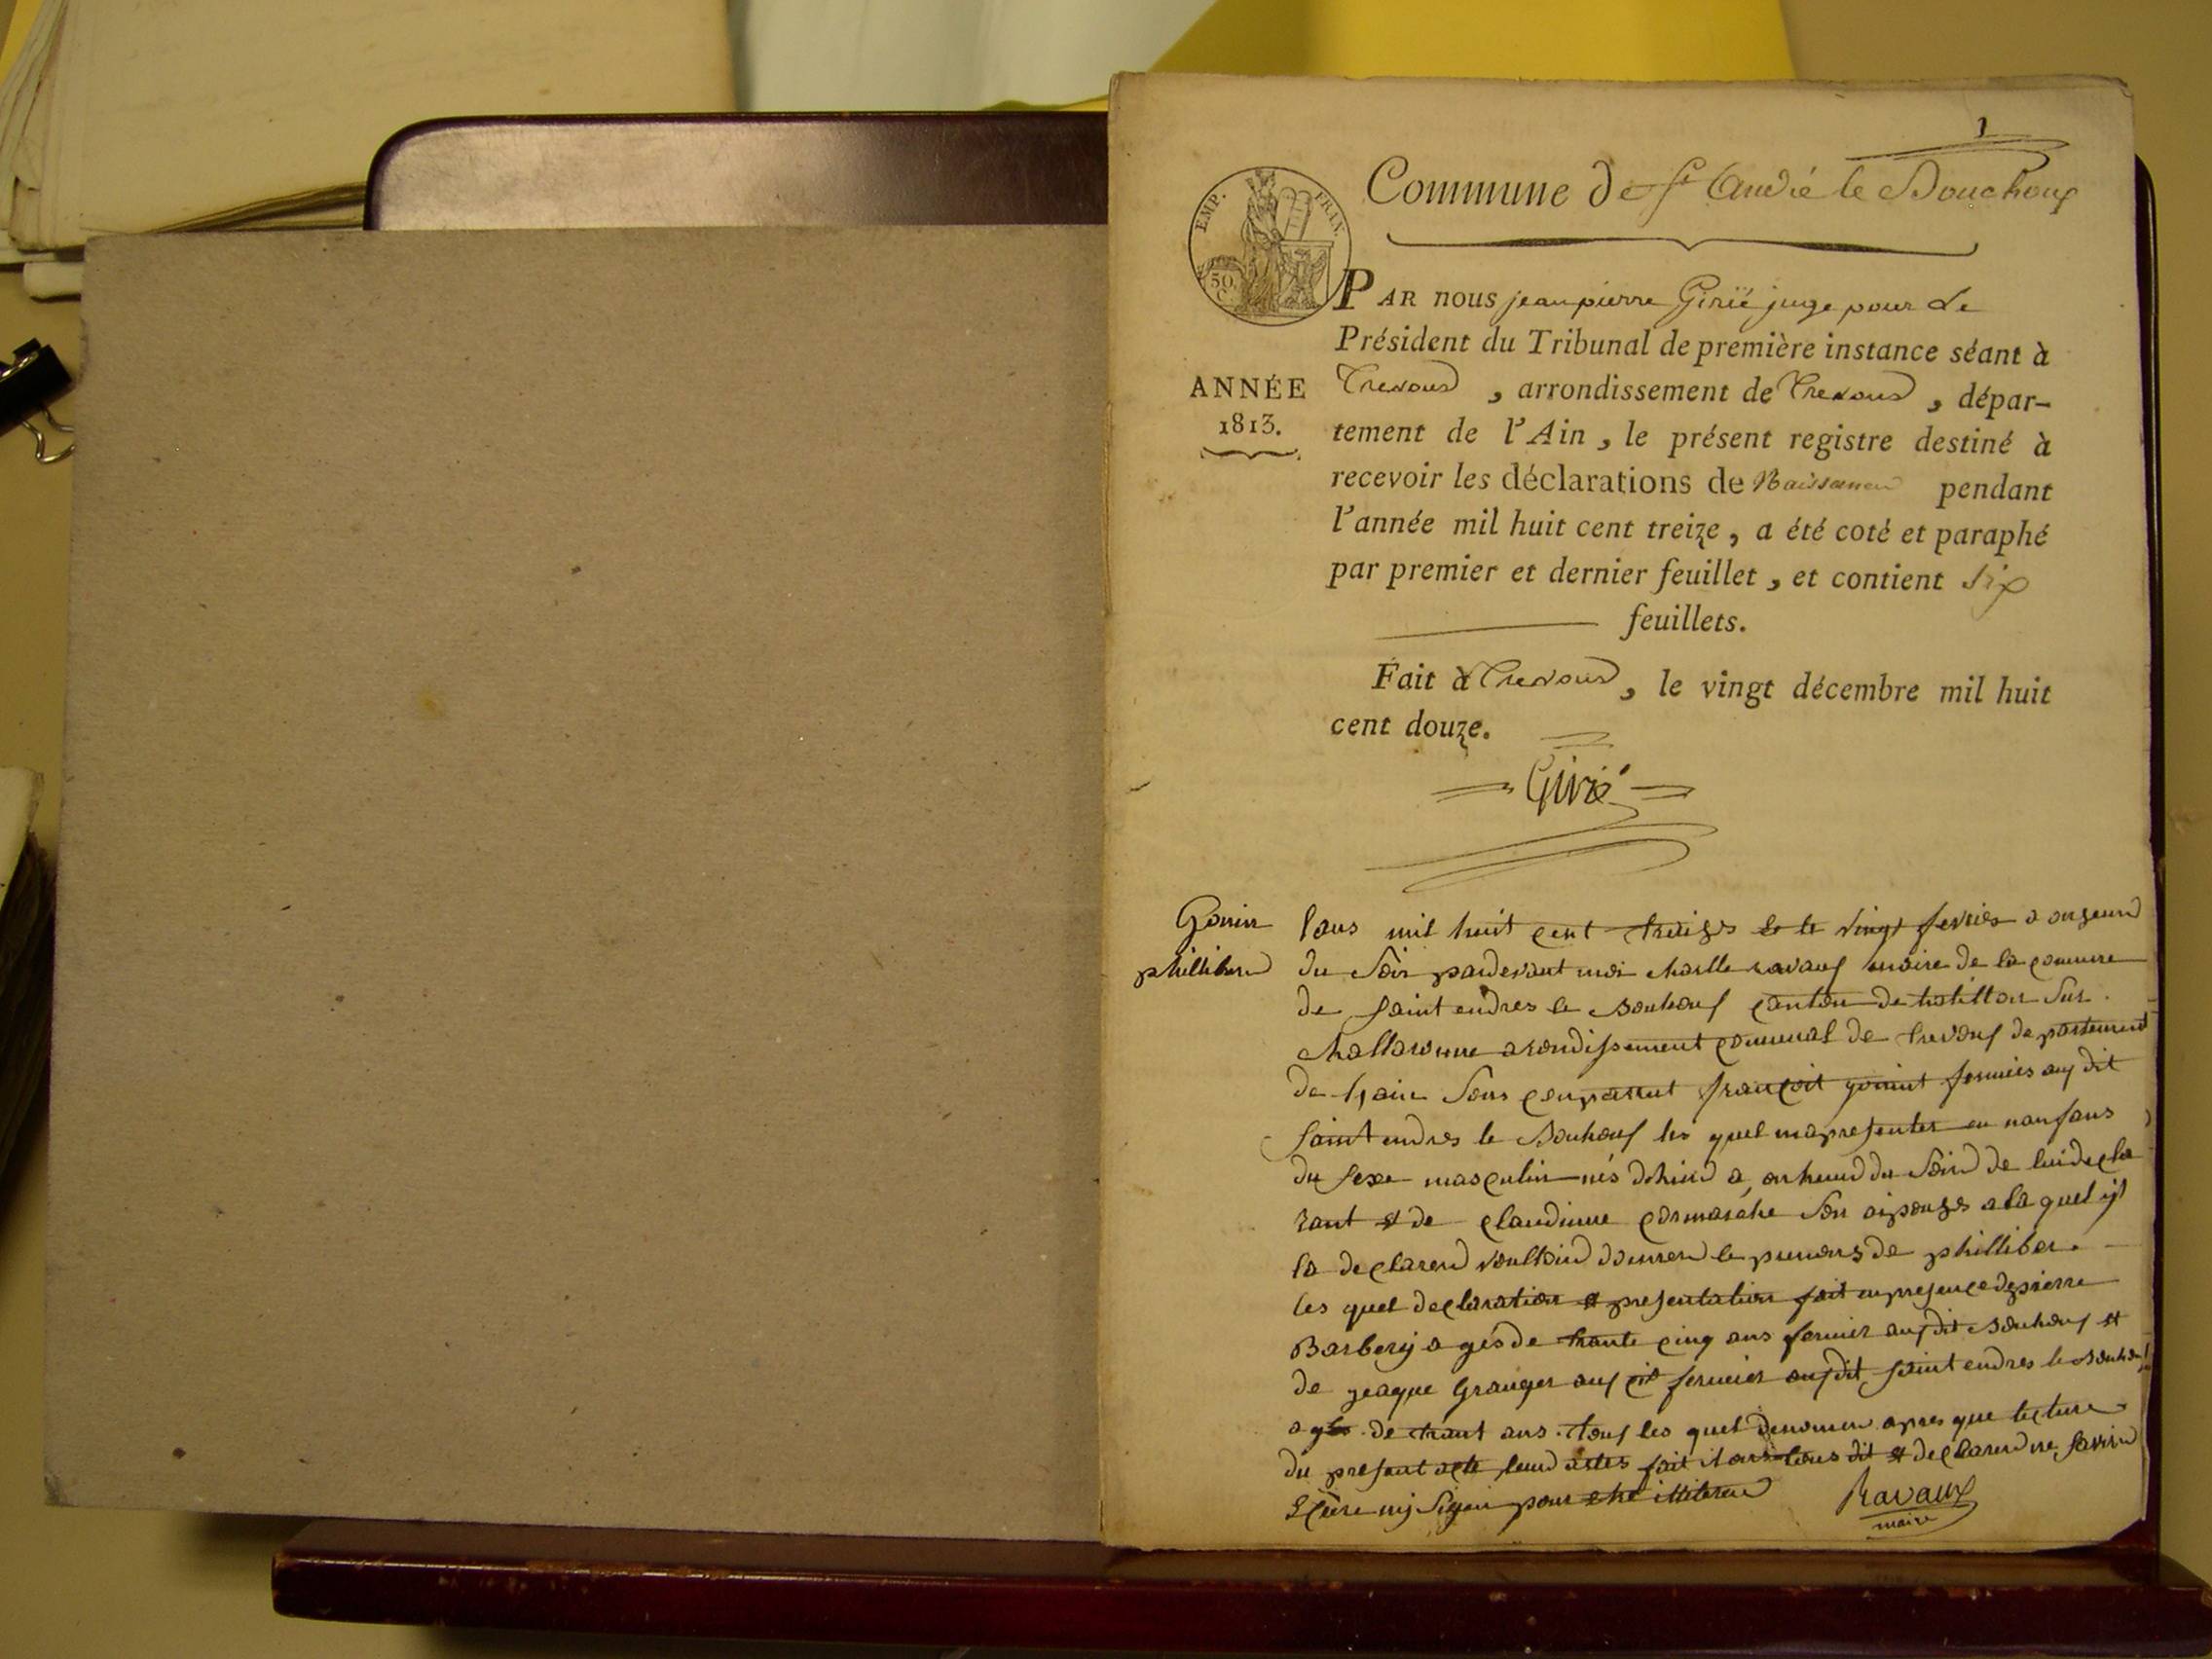 1
Commune de St André le Bouchoux
EMP. FRAN.
50
C.
PAR nous jean pierre Girié juge pour le
Président du Tribunal de première instance séant à
ANNÉE
1813.
Trevoux , arrondissement de Trevoux , dépar-
tement de l'Ain , le présent registre destiné à
recevoir les déclarations de Naissances pendant
l'année mil huit cent treize , a été coté et paraphé
par premier et dernier feuillet , et contient six
feuillets.
Fait à Trevoux , le vingt décembre mil huit
cent douze.
Girié
Gonin
philliberd
lans mil huit cent treizes le vingt fevrier a onzeurd
du Soir pardevant moi charlle ravaux maire de la comune
de saint endres le Bouhoux canton de
challaronne arondissement comunal de trevoux departement
de françoit gonint fermies aux dit
saint endres le Bouhoux les quel ma presenter un nanfans
du sexe masculin nés du Soird de lui decla
rant et de claudinne cormarche Son a la quel ÿl
la declarend donnere le prenons de philliber.
les quel declaration et presentation fait en presence de pierre
Barberÿ a gés de trante cinq ans fermier aux dit Bouhoux et
de jeaque Granger aux fermier aux dit saint endres le Bouhoux
agés de trant ans tous les quel apres que lecture
du present acte dit et declarend ne savoird
pour
Ravaux
maire